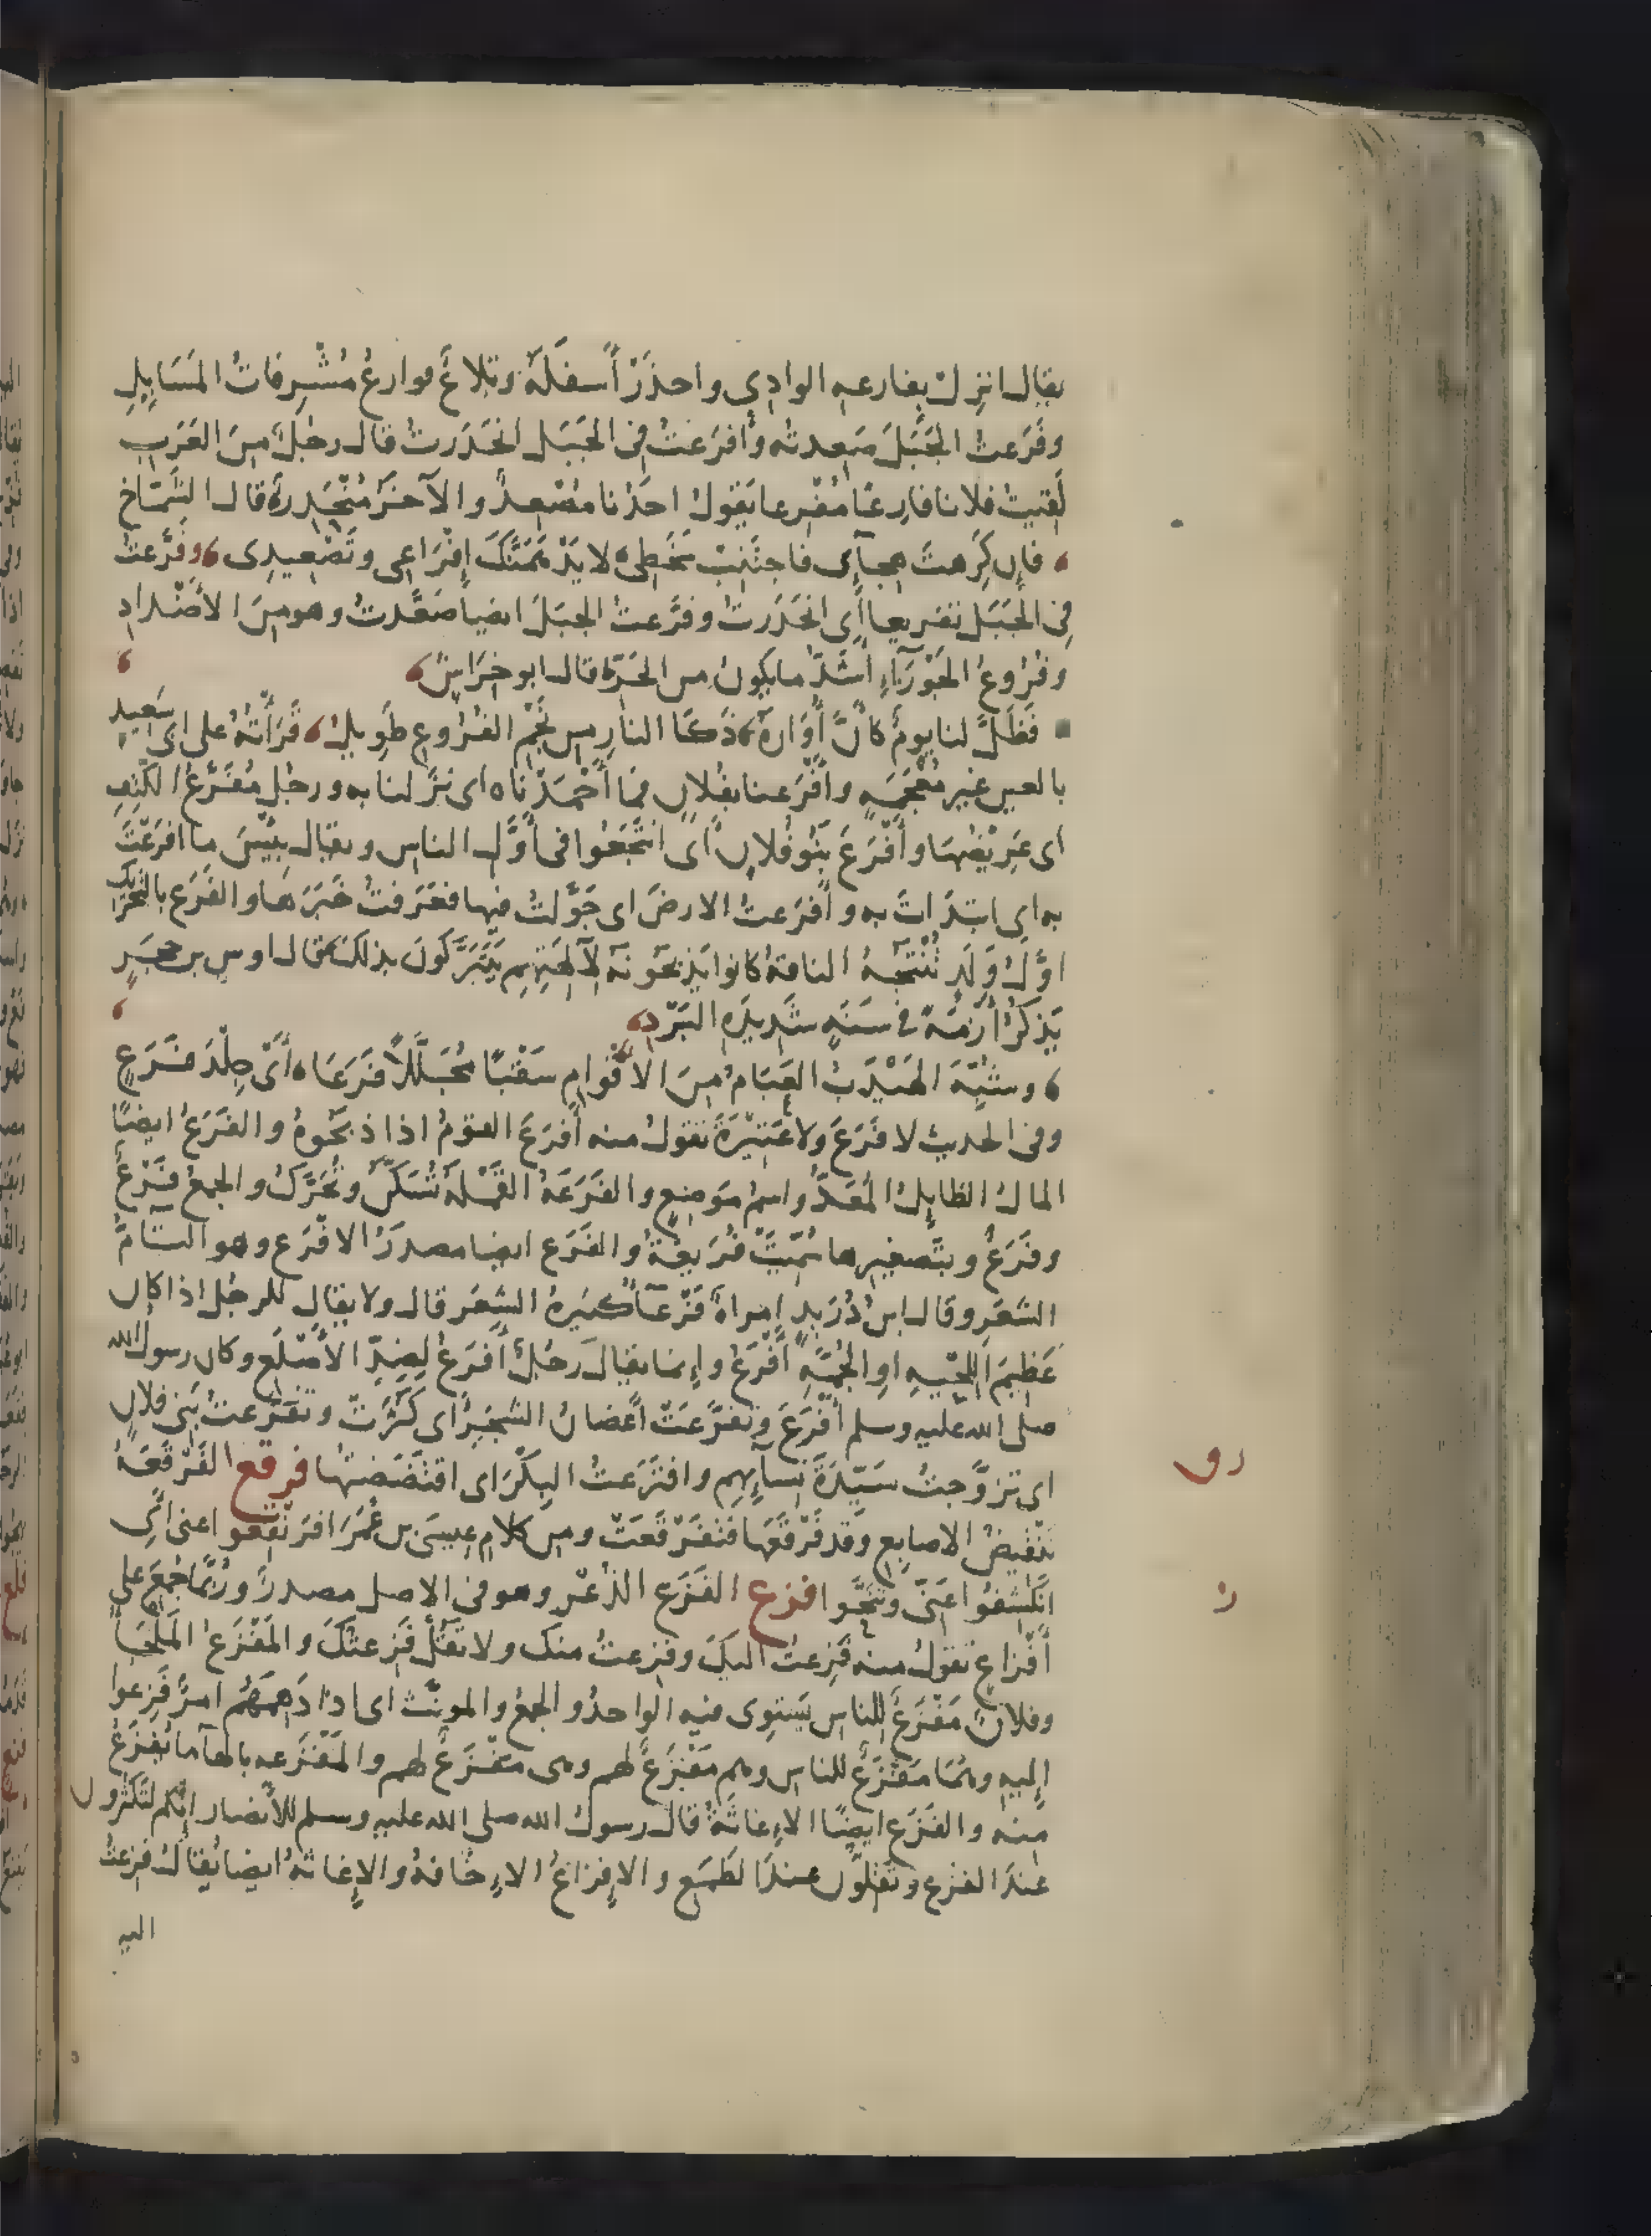 يقال انزل بفارعه الوادي واحذَرْ أَسفلَهُ وتِلاعٌ فوارعُ مُشْرِفاتُ المَسَايِلِ
وفَرَعتُ الجَبَلَ صَعِدته وأَفرَعتُ في الجَبَل انحَدَرتُ قال رجُلٌ مِنَ العَرَب
لَقِيتُ فلانا فارِعًا مُفْرِعا يَقولُ احَدُنا مُصْعِدٌ والآخَرُ مُنْحَدِرٌ قال الشَّمَّاخ
فإِن كَرِهتَ هِجآئى فاجتَنِبْ سَخَطِى لا يَدْهَمَنَّكَ إِفْرَاعِى وتَصْعِيدِى وفَرَّعتُ
في الجَبَل تفريعا أَى انحَدَرتُ وفَرَّعتُ الجبَلَ ايضا صَعَّدتُ وهو مِنَ الأَضْدادِ
وفُرُوعُ الجَوْزَآءِ أَشَدُّ ما يكونُ من الحَرِّ قال ابو خِرَاشٍ
فَظَلَّ لنا يومٌ كأنَّ أُوَارَهُ ذَكا النارِ من نَجْمِ الفُرُوعِ طَوِيلُ قَرَأتُهُ على ابى سَعِيدٍ
بالعين غير مُعْجَمَهٍ وأَفْرَعنا بفُلانٍ فما أَحْمَدْنَاه اى نَزَلنا به ورجُلٌ مُفْرَعُ الكَتِفِ
اى عَرِيْضُها وأَفْرَعَ بَنُو فُلانٍ أَى انْتَجَعُوا فى أَوَّلِ الناسِ ويقال بِئْسَ ما افرَعْتَ
به اى ابتدَاتَ به وأَفرَعتُ الارضَ اى جَوَّلتُ فيها فعَرَفتُ خَبَرَها والفَرَع بالتحْرِيك
اوّلُ وَلَدٍ تُنْتَجُهُ الناقةُ كانوا يَذبَحُونَهُ لآلِهَتِهِم يَتَبَرَّكُونَ بذلك قال اوس بن حَجَرٍ
يَذكُرُ أَزمَةً فى سَنَهٍ شَدِيدَهِ البَرْدِ
وشُبِّهَ الهَيْدَبُ العَبَامُ مِنَ الأَقْوامِ سَقْبًا مُجَلَّلًا فَرَعَا أَىْ جِلْدَ فَرَعٍ
وفى الحديث لا فَرَعَ ولا عَتِيْرَةَ تقولُ منه أَفرَعَ القومُ اذا ذبَحُوهُ والفَرَعُ ايضًا
المالُ الطايِلُ المُعَدُّ واسمُ مَوضِعٍ والفَرَعَهُ القَمْلَهُ تُسَكَّنُ وتُحَرَّكُ والجمعُ فَرْعٌ
وفَرَعٌ وبتَصغيرها سُمِّيَتْ فُرَيعَهُ والفَرَع ايضا مصدَرُ الافْرَعِ وهو التآمُّ
الشعَرِ وقال ابنُ دُرَيدٍ امراهٌ فَرْعآءُ كثيرهُ الشعَر قال ولا يقال للرجُلِ اذا كان
عَظِيمَ اللِّحْيهِ او الجُمَّهِ أَفْرَعُ وإِنما يقالُ رجُلٌ أَفرَعُ لِضِدِّ الأَصْلَعِ وكان رسولُ الله
صلى الله عليه وسلم أَفْرَعَ وتفرَّعَتْ أَغصانُ الشجَرِ اى كَثُرَتْ وتفَرَّعتُ بَنِى فلانٍ
اى تزَوَّجتُ سَيِّدَةَ نِسآئِهِم وافتَرَعتُ البِكْرَ اى افتَضَضتُها فرقع الفَرْقَعَهُ
تنقيضُ الاصابِع وقد فَرْقَعَها فتَفَرْقَعَتْ ومن كلام عِيسَى بن عُمَرَ افرَنْقِعُوا عنى أَى
انكَشِفُوا عَنِّى وتَنَحَّوا فزع الفَزَع الذُعْر وهو فى الاصل مصدرٌ ورُبَّما جُمِعَ على
أَفْزاعٍ تقولُ منه فَزِعتُ اليكَ وفزِعتُ منك ولا تَقُلْ فَزِعتُكَ والمَفْزَعُ المَلْجَأُ
وفلانٌ مَفْزَعٌ للناس يَستَوِى فيه الواحدُ والجمعُ والمونَّث اى اذا دَهِمَهُمْ امرٌ فَزِعوا
إليهِ وهُمَا مَفْزَعٌ للناس وهم مَفْزَعٌ لهم وهى مَفْزَعٌ لهم والمَفْزَعه بالهآ ما يُفْزَعُ
مِنه والفَزَع ايضًا الاِغاثَهُ قال رسولُ الله صلى الله عليه وسلم للأَنصار إنَّكم لتَكْثُرُون
عندَ الفزَع وتَقِلُّون عندَ الطَمَع والاِفزاعُ الاِخافهُ والاِغاثهُ ايضا يُقالُ فزِعتُ
اليه
رو
ز